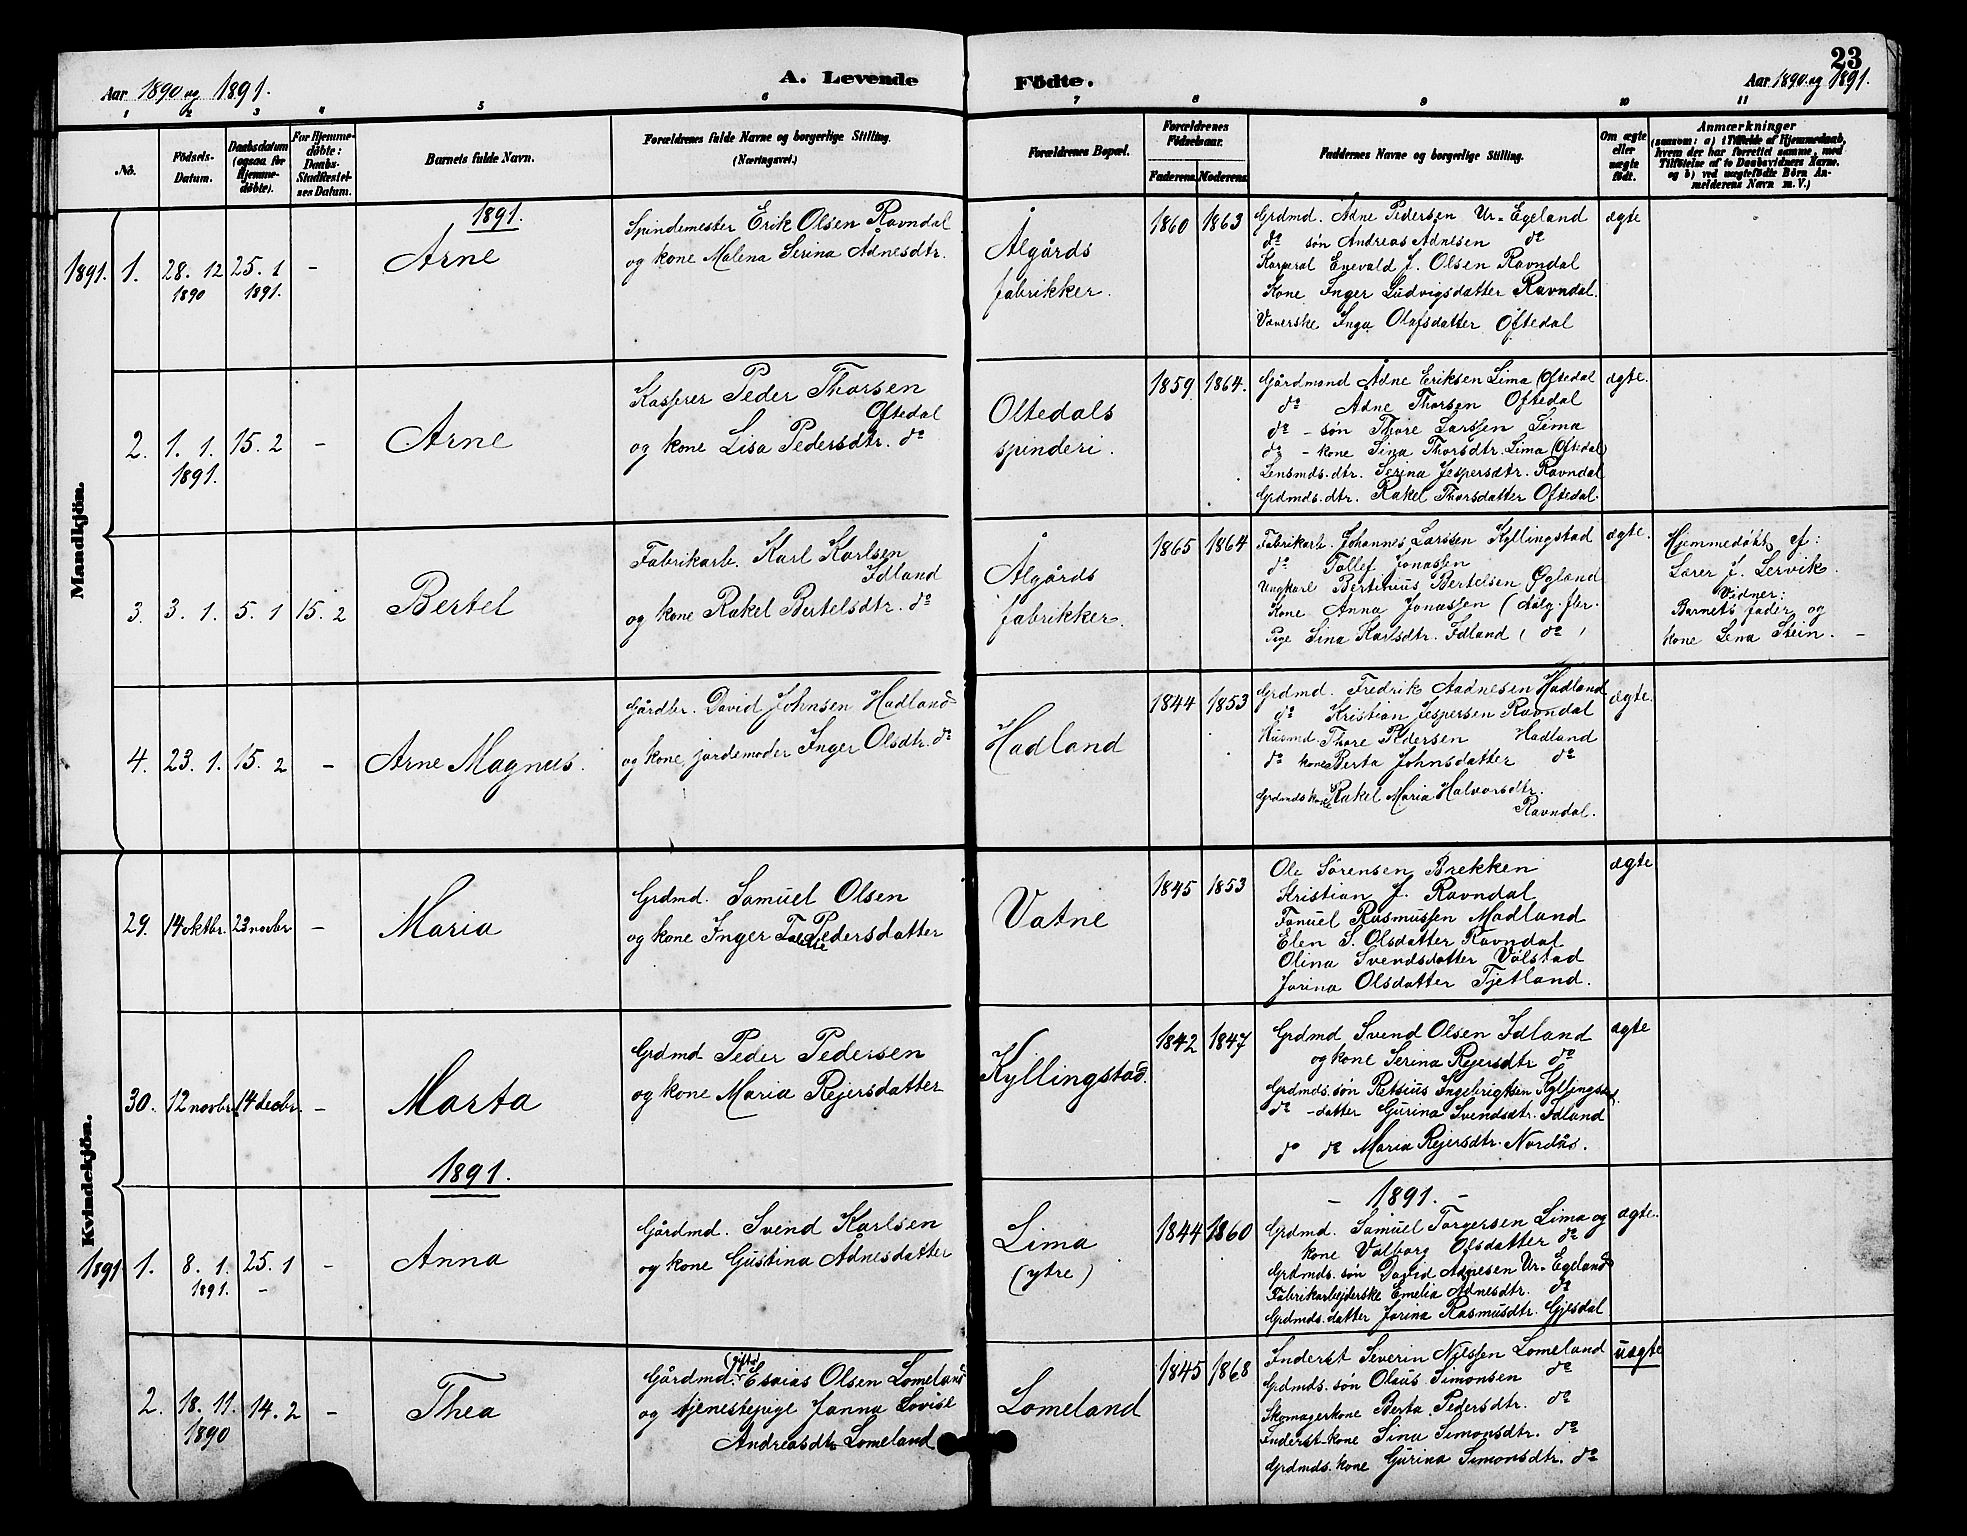 23
Aar 1890 og 1891.
A. Levende Födte.
Aar 1890 og 1891.
1 2 3 4 5 6 7 8 9 10 11
No.
Födsels-Datum.
Daabsdatum (ogsaa for Hjemme-döbte).
For Hjemme-döbte: Daabs-Stadfæstel-ses Datum.
Barnets fulde Navn.
Forældrenes fulde Navne og borgerlige Stilling. (Næringsvei.)
Forældrenes Bopæl.
Forældrenes Födselsaar.
Faderens Moderens
Faddernes Navne og borgerlige Stilling.
Om ægte eller uægte födt.
Anmærkninger
(saasom: a) i Tilfælde af Hjemmedaab, hvem der har forrettet samme, med Tilföielse af to Daabsvidners Navne. og b) ved uægtefödte Börn An-melderens Navn m. V.)
Mandkjön.
1891.
1891. 1. 28. 12 1890
25. 1 1891.
-
Arne
Spindemester Erik Olsen Ravndal
og kone Malena Serina Adnesdtr.
Ålgårds
fabrikker.
1860 1863
Grdmd. Adne Pedersen Ur-Egeland
do søn Andreas Adnesen do
Korporal Enevald J. Olsen Ravndal
Kone Inger Ludvigsdatter Ravndal.
Væverske Inga Olafsdatter Oftedal
ægte
2. 1. 1. 1891.
15. 2
-
Arne
Kasserer Peder Thorsen
Oftedal
og kone Lisa Pedersdtr. do
Oltedals
spinderi.
1859 1864.
Gårdmand Adne Eriksen Lima (Oftedal
do Adne Thorsen Oftedal
do - søn Thore Larssen Lima
do - kone Sina Thorsdtr. Lima (Oftedal)
Lensmds. dtr. Serina Jespersdtr. Ravndal
Grdmds. dtr. Rakel Thorsdatter Oftedal.
ægte.
3. 3. 1. 5. 1 15. 2
Bertel
Fabrikarb. Karl Karlsen
Idland
og kone Rakel Bertelsdtr. do
Ålgårds
fabrikker.
1865 1864
Fabrikarb. Johannes Larssen Kyllingstad
do Tollef Jonassen
Ungkarl Bertinius Bertelsen Øgland
Kone Anna Jonassen (Aalg. fbr.
Pige Sina Karlsdtr. Idland ( do )
ægte.
Hjemmedøbt af:
Lærer J. Lervik.
Vidner:
Barnets fader og
kone Lena Stein. -
4. 23. 1. 15. 2 -
Arne Magnus.
Gårdbr. David Johnsen Hadland
og kone, jordemoder Inger Olsdtr. do
Hadland
1844 1853
Grdmd. Fredrik Aadnesen Hadland
do Kristian Jespersen Ravndal
Husmd Thore Pedersen Hadland
do kone Berta Johnsdatter do
Grdmds kone Rakel Maria Halvorsdtr.
Ravndal.
ægte.
Kvindekjön.
29. 14 oktbr. 23 novbr -
Maria
Grdmd. Samuel Olsen
og kone Inger Pedersdatter
Vatne
1845 1853
Ole Sørensen Brekken
Kristian J. Ravndal
Fanuel Rasmussen Madland
Elen S. Olsdatter Ravndal
Olina Svendsdatter Vølstad
Jorina Olsdatter Tjetland.
ægte
30. 12 novbr. 14 decbr. -
Marta
Grdmd Peder Pedersen
og kone Maria Rejersdatter
Kyllingstad.
1842 1847
Grdmd Svend Olsen Idland
og kone Serina Rejersdtr do
Grdmds. søn Retsius Ingebrigtsen Kyllingstad.
do - datter Gurina Svendsdtr. Idland
do do Maria Rejersdtr. Nordås.
ægte
1891.
- 1891. -
1891 1. 8. 1. 1891.
25. 1
-
-
Anna
Gårdmd. Svend Karlsen
og kone Gustina Ådnesdatter
Lima
(ytre)
1844 1860
Grdmd. Samuel Torgersen Lima og
kone Valborg Olsdatter do
Grdmds. søn David Adnesen Ur-Egeland
Fabrikarbejderske Emelia Adnesdtr. do
Grdmds. datter Jorina Rasmusdtr. Gjesdal
ægte.
2. 18. 11. 1890
14. 2
-
Thea
(gift)
Gårdmd. Esaias Olsen Lomeland
og tjenestepige Janna Lovise
Andreasdtr Lomeland
Lomeland
1845 1868
Inderst Severin Nilssen Lomeland
Grdmds. søn Olaus Simonsen do
Skomagerkone Berta Pedersdtr. do
Inderst-kone Sina Simonsdtr. do
Grdmds. kone Gurina Simonsdtr. do
uægte